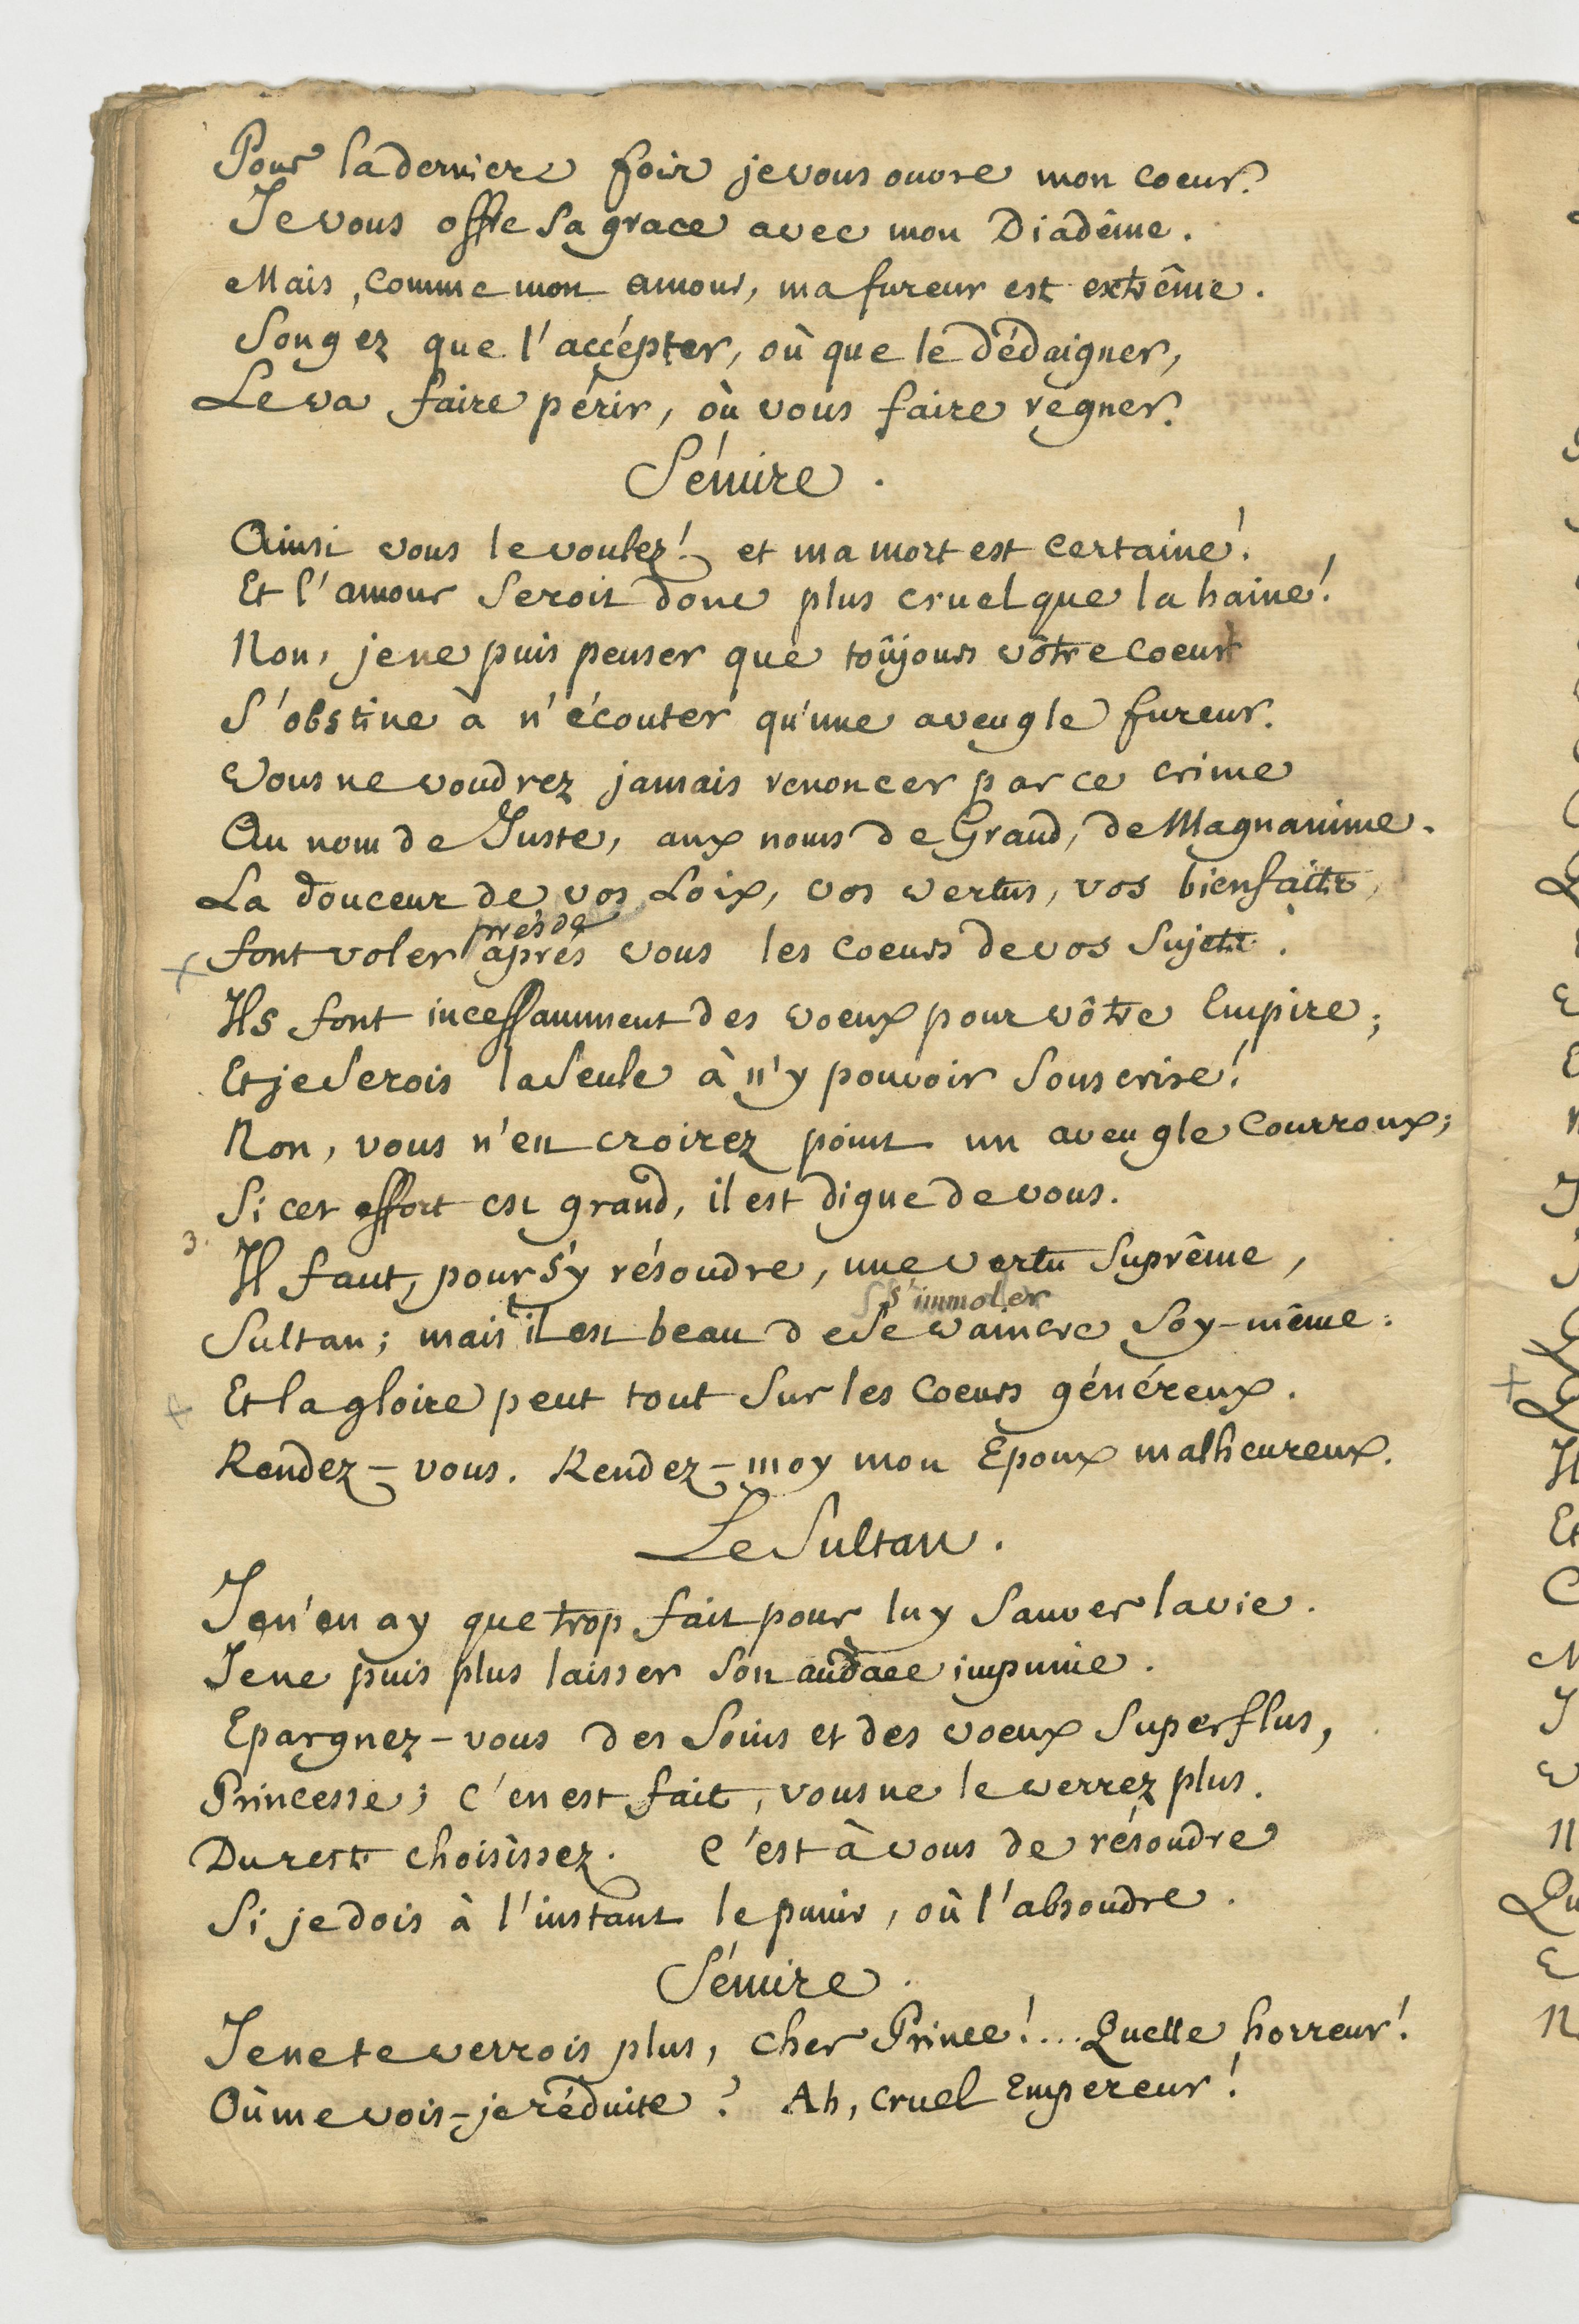 Pour la derniere fois je vous ouvre mon coeur.
Je vous offre sa grace avec mon Diadême.
Mais, comme mon amour, ma fureur est extrême.
Songez que l'accépter, où que le dédaigner,
Le va faire périr, où vous faire regner.
Sémire.
Ainsi vous le voulez! et ma mort est certaine!
Et l'amour seroit donc plus cruel que la haine!
Non, je ne puis penser que toûjours vôtre coeur
S'obstine à n'écouter qu'une aveugle fureur.
Vous ne voudrez jamais renoncer par ce crime
Au nom de Juste, aux noms de Grand, de Magnanime.
La douceur de vos Loix, vos vertus, vos bienfaits,
près de
× font voler aprés vous les coeurs de vos Sujets.
Ils font incessamment des voeux pour vôtre Empire;
Et je serois la seule à n'y pouvoir souscrire!
Non, vous n'en croirez point un aveugle courroux;
Si cet effort est grand, il est digne de vous.
3. Il faut, pour s'y résoudre, une vertu suprême,
s'immoler
Sultan; mais il est beau de se vaincre soy-même:
× Et la gloire peut tout sur les coeurs généreux.
Rendez-vous. Rendez-moy mon Epoux malheureux.
Le Sultan.
Je n'en ay que trop fait pour luy sauver la vie.
Je ne puis plus laisser son audace impunie.
Epargnez-vous des soins et des voeux superflus,
Princesse; c'en est fait, vous ne le verrez plus.
Du reste choisissez. C'est à vous de résoudre
Si je dois à l'instant le punir, où l'absoudre.
Sémire.
Je ne te verrois plus, cher Prince!... Quelle horreur!
Où me vois-je réduite? Ah, cruel Empereur!